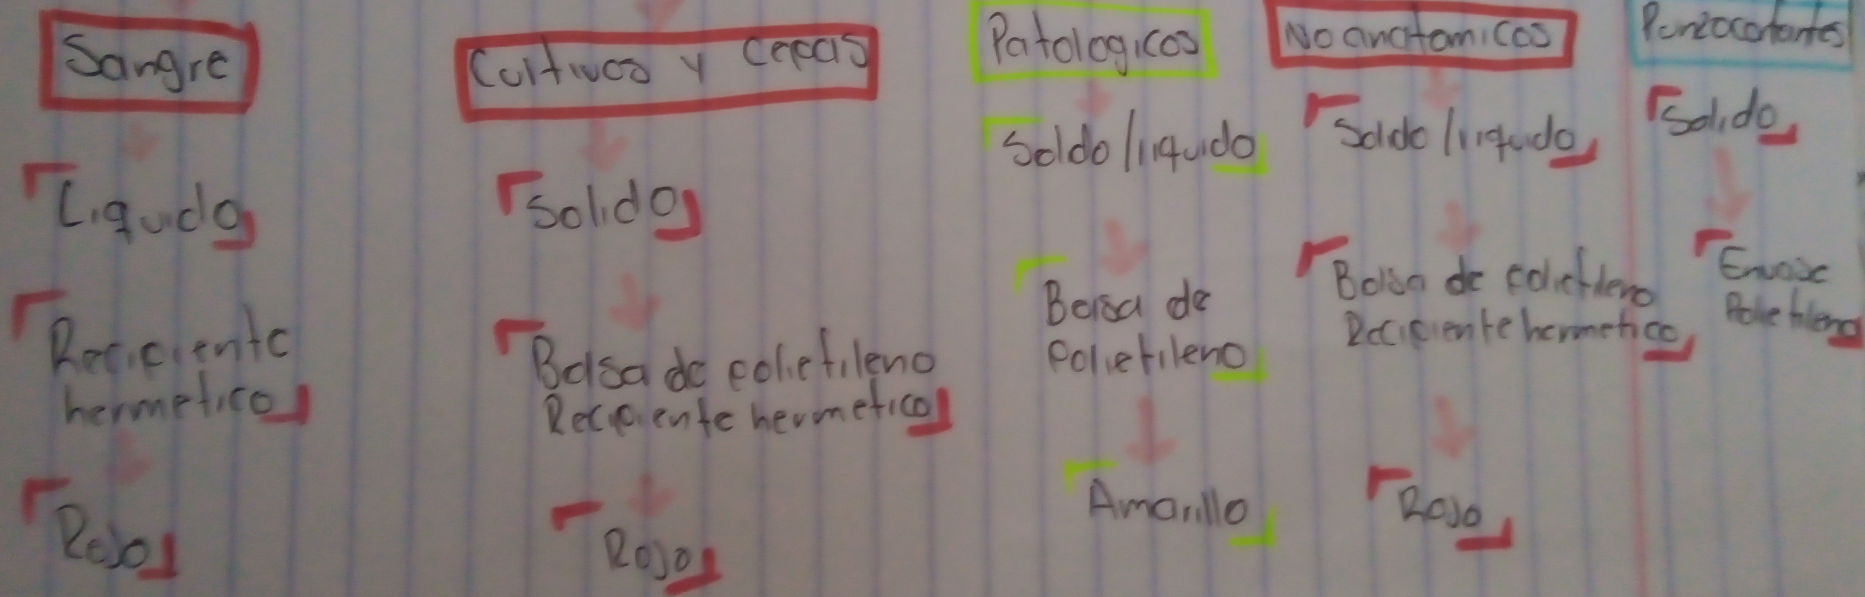 Sangre
Liquido
Recipiente
hermetico
Rojo
Cultivos y cepas
Solido
Bolsa de polietileno
Recipiente hermetico
Rojo
Patologicos
Soldo/liquido
Bolsa de
Polietileno
Amarillo
No anatomicos
Solido/liquido
Bolsa de polietileno
Recipiente hermetico
Rojo
Punzocortantes
Solido
Envase
Polietileno